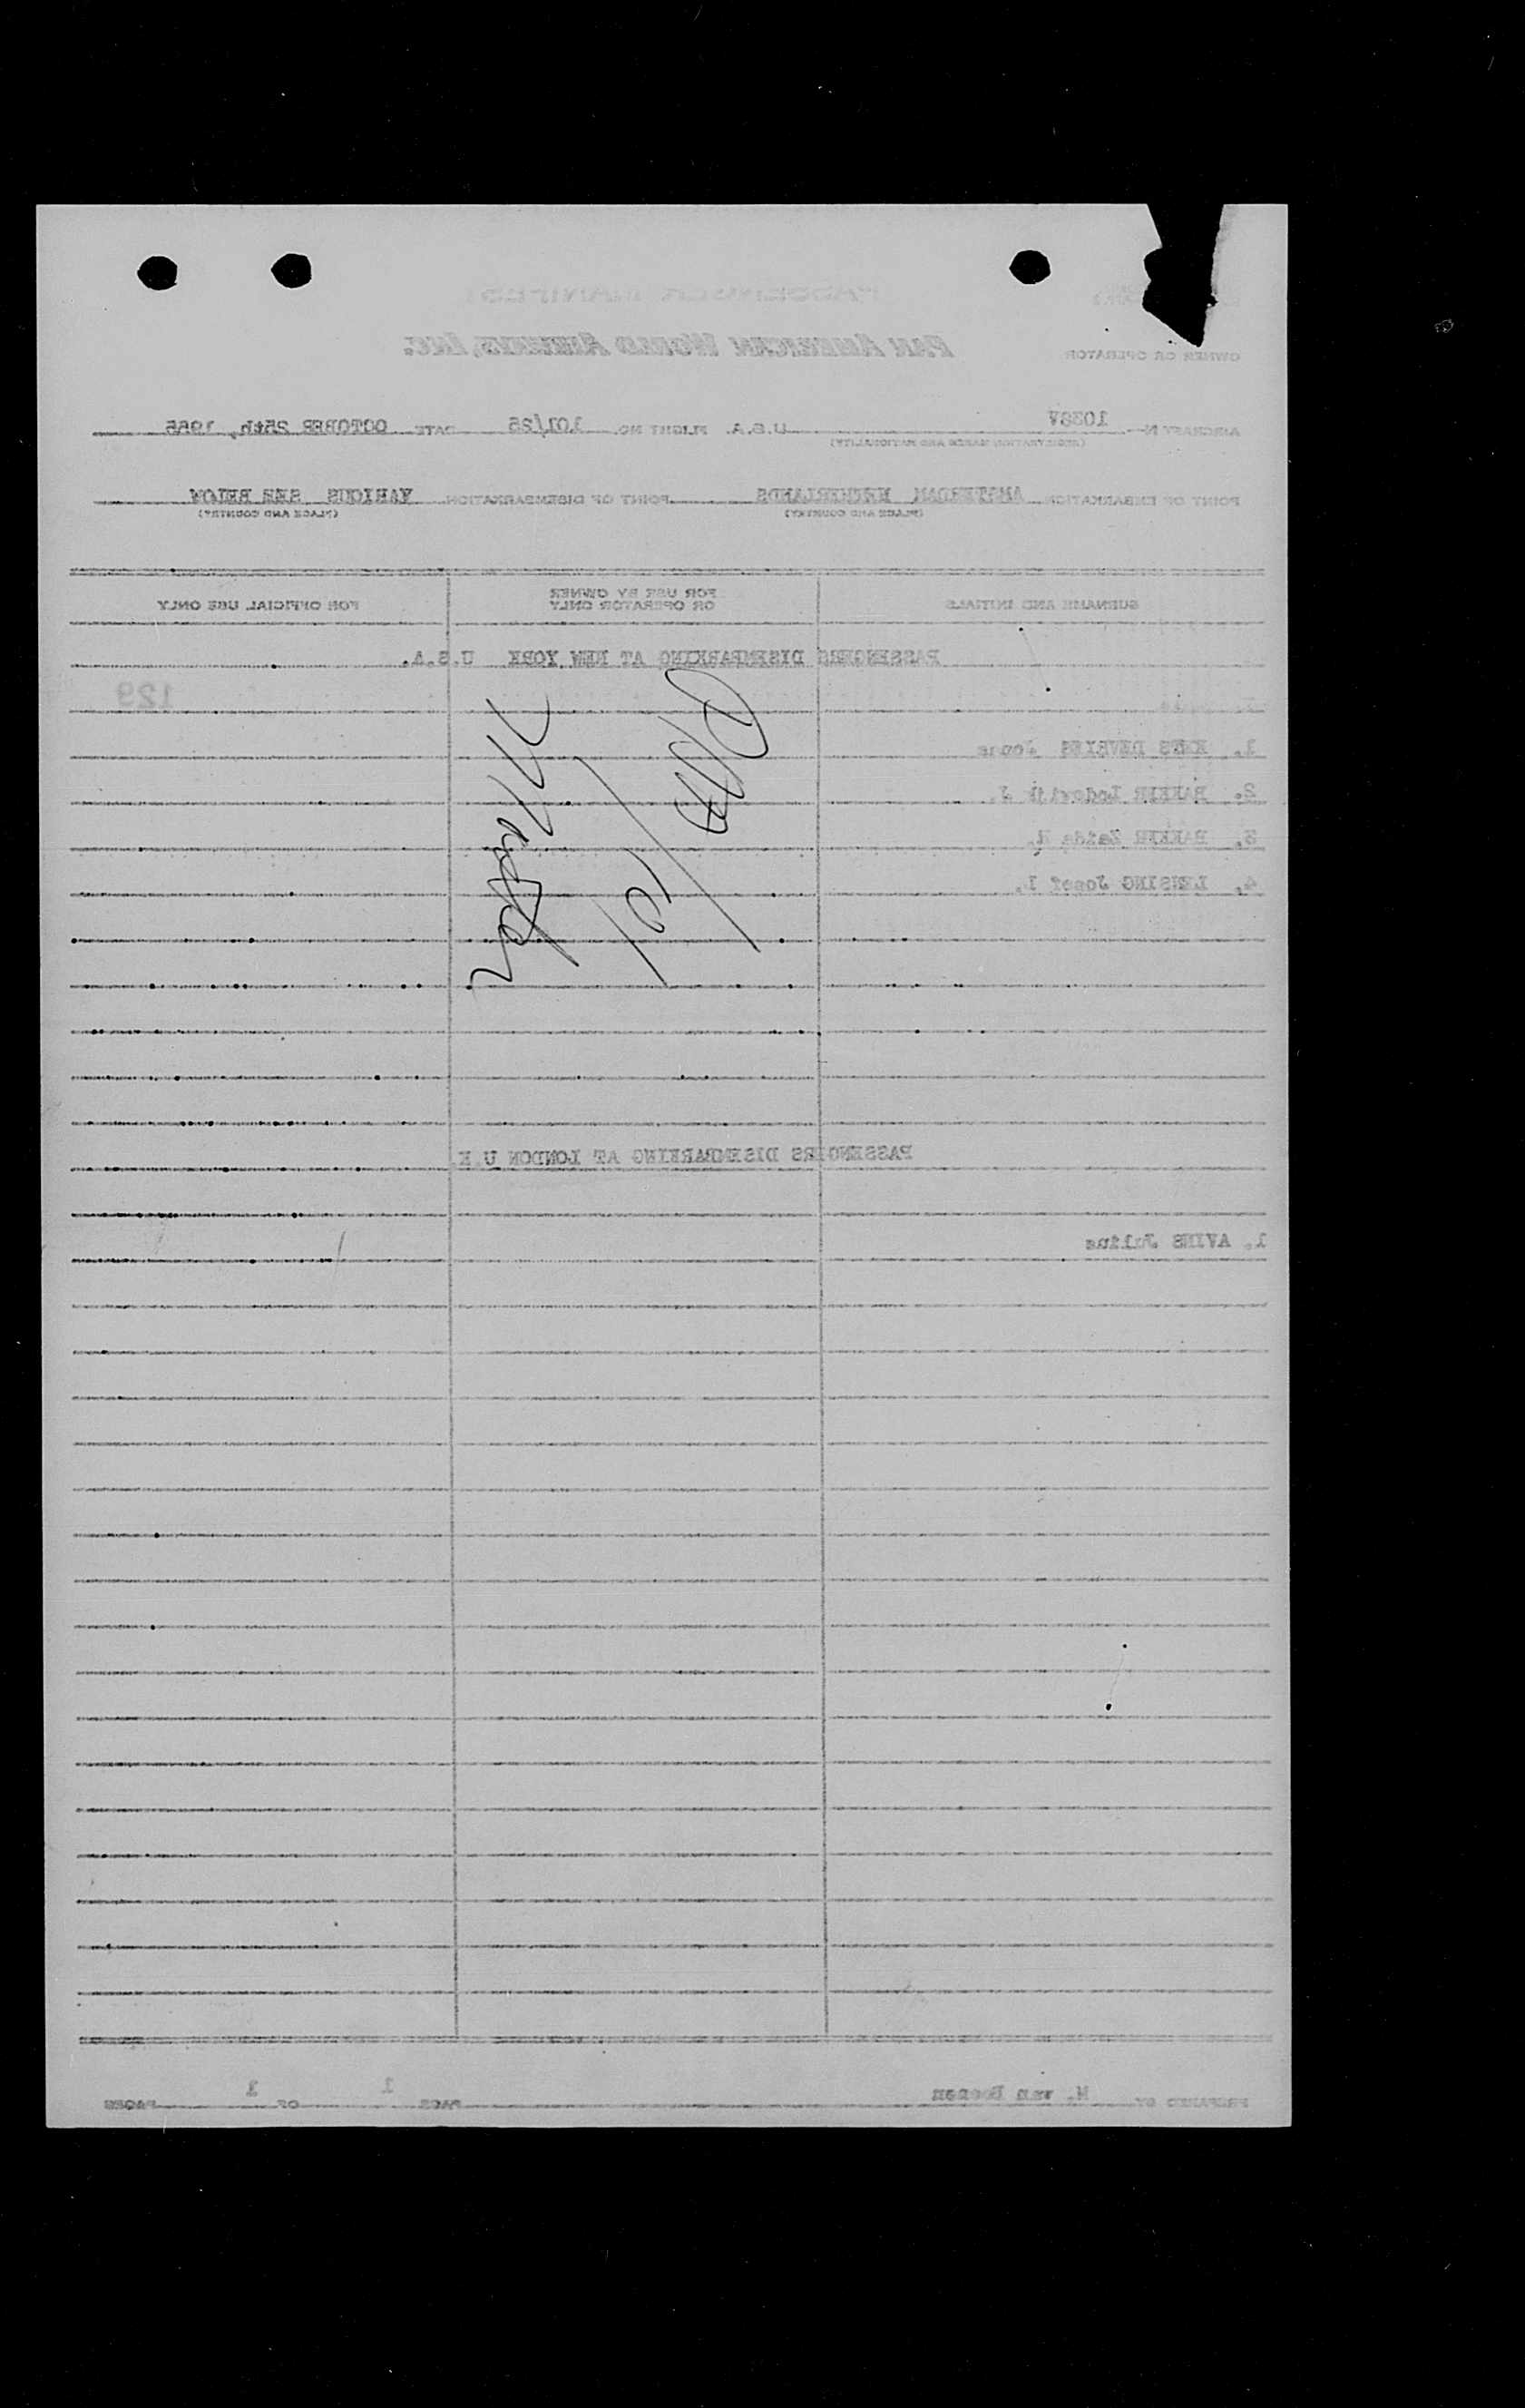 PASSENGER MANIFEST
OWNER OR OPERATOR PAN AMERICAN WORLD AIRWAYS, INC.
AIRCRAFT N- 1038V U.S.A. FLIGHT NO. 101/25 DATE OCTOBER 25th, 1955
(REGISTRATION MARKS AND NATIONALITY)
POINT OF EMBARKATION AMSTERDAM NETHERLANDS POINT OF DISEMBARKATION VARIOUS SEE BELOW
(PLACE AND COUNTRY) (PLACE AND COUNTRY)
SURNAME AND INITIALS FOR USE BY OWNER OR OPERATOR ONLY FOR OFFICIAL USE ONLY
PASSENGERS DISEMBARKING AT NEW YORK U.S.A.
129
1. KEES Jonna
2. BAKKER Lodewijk J.
3. BAKKER Zaida
4. LENSING Josef
PAA
101
PASSENGERS DISEMBARKING AT LONDON U.K.
1. AVINS Julius
PREPARED BY M. van PAGE 1 OF 1 PAGES